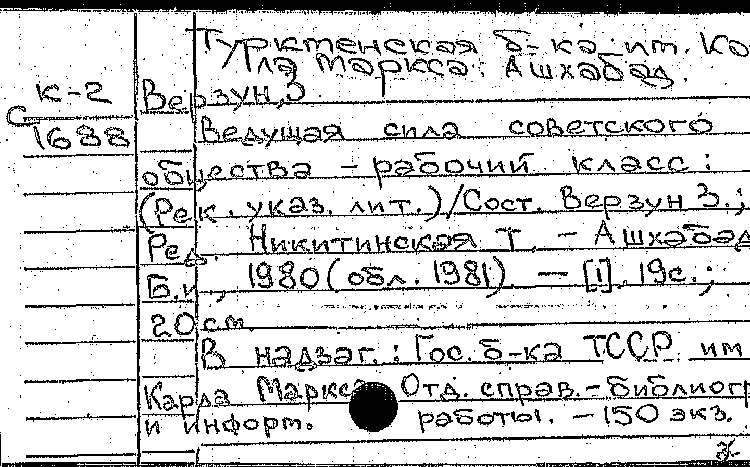 Туркменская б-ка им. Ка
рла Маркса. Ашхабад.
К-2
Верзун, З
С
1688
Ведущая сила советского
общества - рабочий класс:
(Рек. указ. лит.)/Сост. Верзун З.;
Ред. Никитинская Т. - Ашхабад
Б.и., 1980 (обл. 1981). - [1], 19с.;
20 см.
В надзаг.: Гос. б-ка ТССР им
Карла Маркса. Отд. справ.-библиогр
и информ. работы. - 150 экз.